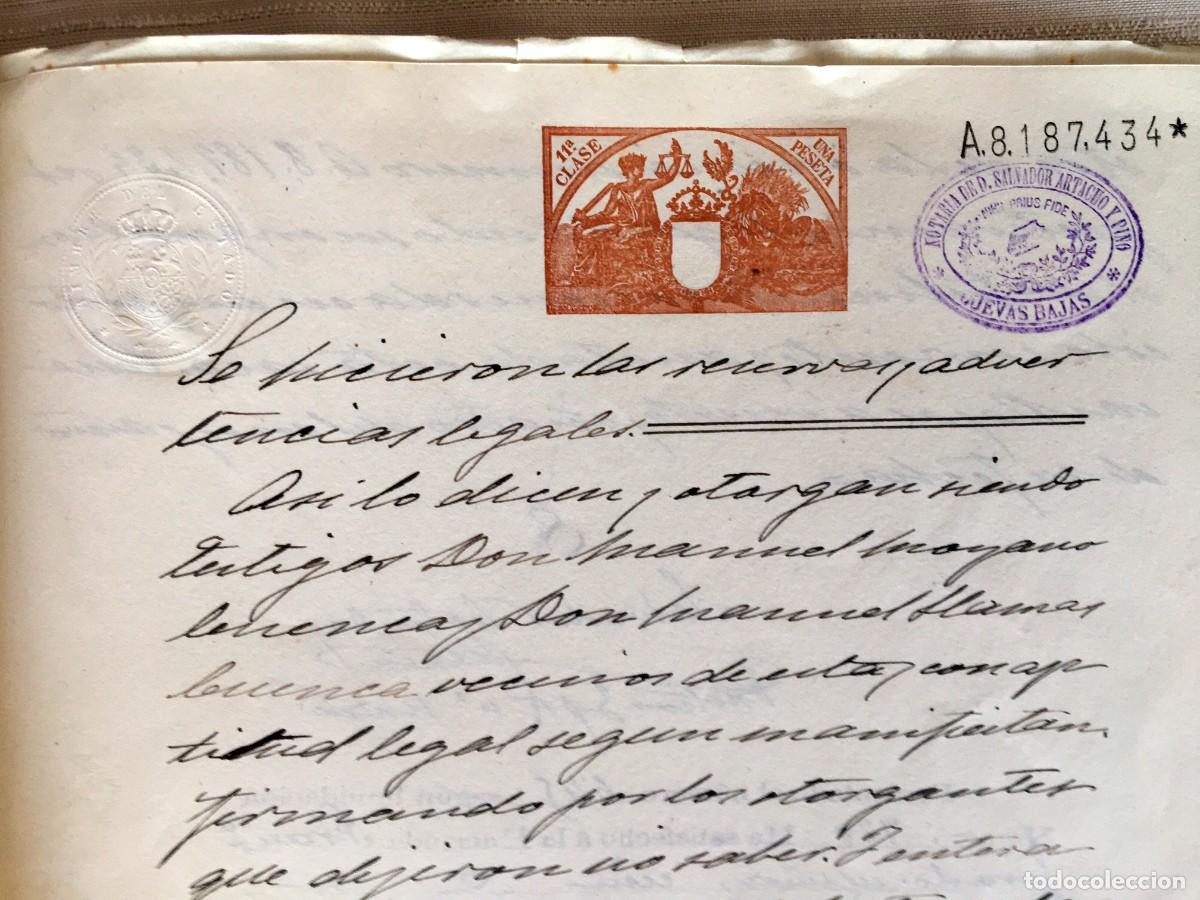 A.8.187.434*
11ª CLASE
UNA PESETA
TIMBRE DEL ESTADO
NOTARIA DE D. SALVADOR ARTACHO Y PINO
NIHIL PRIUS FIDE
* CUEVAS BAJAS *
Se hicieron las reservas y adver
tencias legales.
Asi lo dicen y otorgan siendo
testigos Don Manuel Moyano
Cuenca y Don Manuel Llamas
Cuenca vecinos de esta y con ap
titud legal segun manifiestan,
firmando por los otorgantes
que dijeron no saber. Y entera
todocoleccion